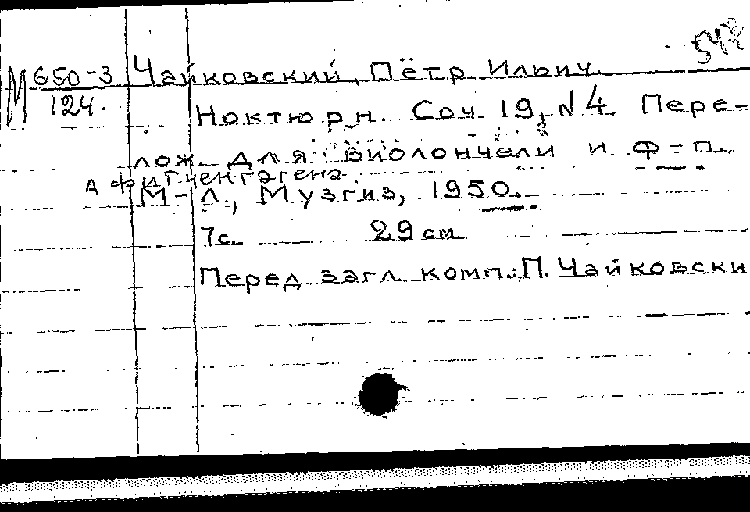 548
М 650-3 Чайковский, Пётр Ильич.
124.
Ноктюрн. Соч. 19, N4. Пере-
лож. для виолончели и ф-п.
А. Фитценгагена.
М-Л, Музгиз, 1950.
7с. 29 см
Перед загл. комп.: П. Чайковски